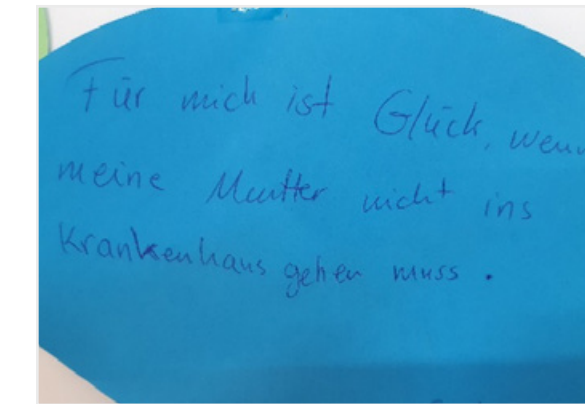 Für mich ist Glück, wenn
meine Mutter nicht ins
Krankenhaus gehen muss.